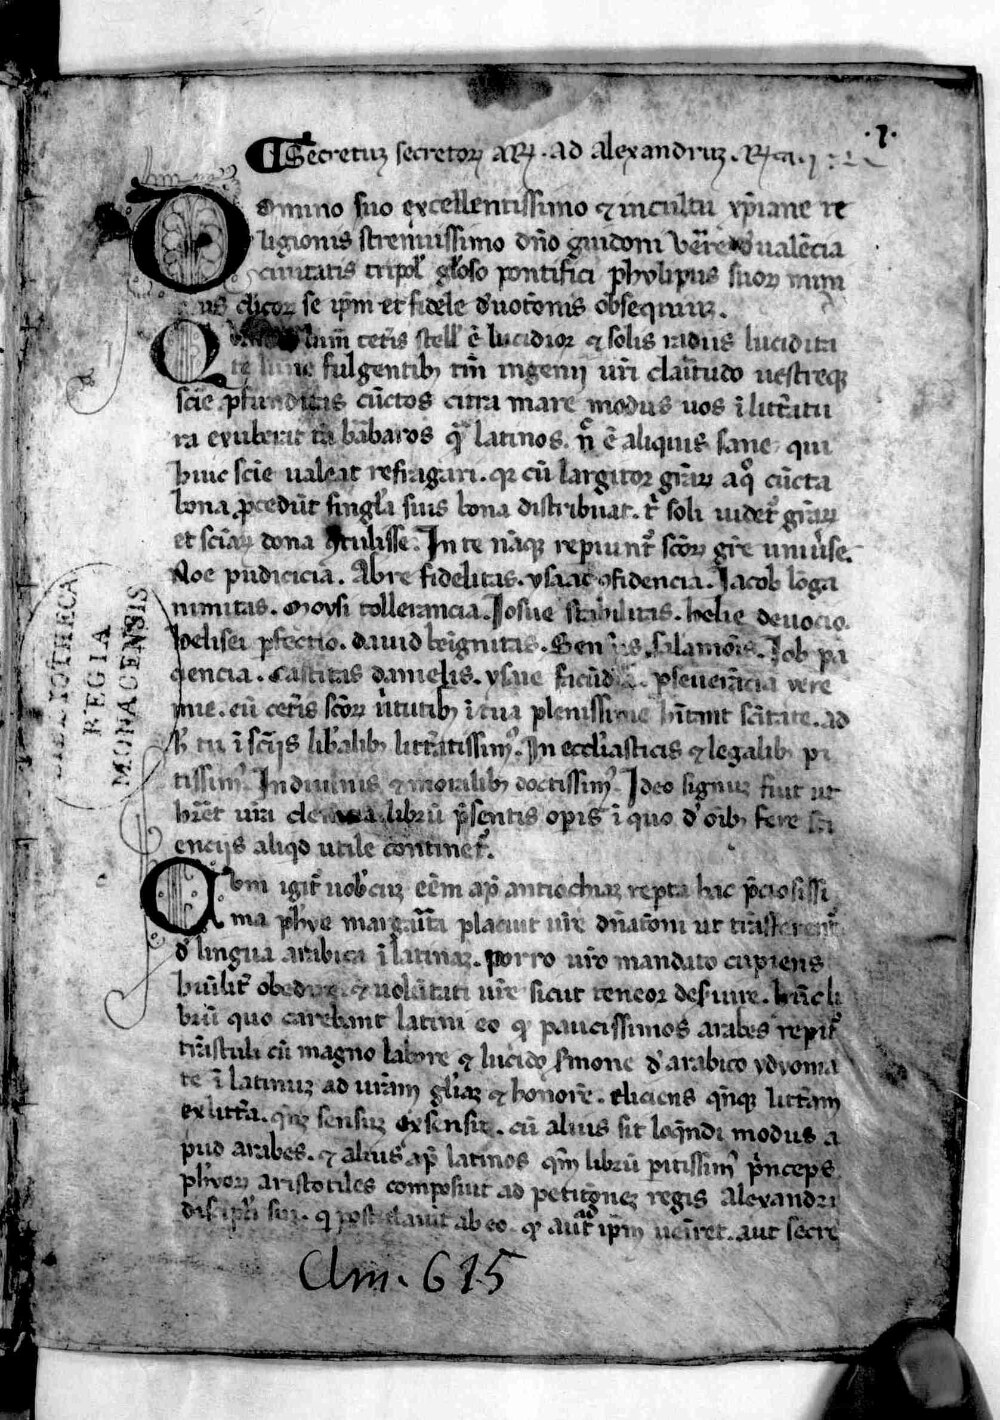 .1.
Secretuȝ secretoꝝ aꝝ. ad alexandruȝ.
Domino suo excellentissimo ⁊ in cultu xp̄iane re
ligionis strenuissimo dn̄o guidoni vere d' valēcia
ciuitatis tripol' gl'oso pontifici phylipus suoꝝ mini
mus cl'icoꝝ se ip̄m et fidele d'uotōnis obsequiuȝ.
Q lum̄ cet̄is stell' ē lucidior ⁊ solis radius lucidita
te lune fulgentibȝ tm̄ ingenij ur̄i claritudo uestreqȝ
scīe ꝓfunditas cūctos citra mare modūs uos ī litt̄atu
ra exuberat tā bārbaros qᵃ latinos. n̄ ē aliquis sane qui
huic scīe ualeat refragari. qr cū largitor gr̄aꝝ a qͦ cūcta
bona ꝓcedūt singl'a suis bona distribuat. t' soli uidet̄ gr̄aꝝ
et scīaꝝ dona ꝯtulisse. In te nāqȝ repiunt̄ scōꝝ gr̄e uniu'se.
Noe pudicicia. Abre fidelitas. ysaac ꝯfidencia. Jacob lōga
nimitas. Moysi tollerancia. Josue stabilitas. helie deuocio.
helisei ꝑfectio. dauid benignitas. Sensus salamōis. Job pa
ciencia. castitas danielis. ysaie facūdia. ꝑseuerācia iere
mie. cū cet̄is scōꝝ u'tutibȝ ī tua plenissime hītant scītate. ad
h' tu ī scīijs lib'alibȝ litt̄atissimꝰ. In eccl'iasticis ⁊ legalibȝ pi
tissimꝰ. In diuinis ⁊ moralibȝ doctissimꝰ. Ideo dignuȝ fuit ut
hr̄et ur̄a clemēcia librū p̄sentis opis ī quo d' oībȝ fere sci
encijs aliqd utile continet̄.
Cum igit̄ uob'cuȝ eēm ap̄ antiochiaȝ repta hac p̄ciosissi
ma ph'ye margar̄ita placuit ur̄e dn̄atōni ut trāsferent̄
d' lingua arabica ī latinaȝ. porro ur̄o mandato cupiens
hūilit̄ obedire. ⁊ uolūtati ur̄e sicut teneor deseruire. hūc li
brū quo carebant latini eo qȝ paucissimos arabes repit̄
trāstuli cū magno labore ⁊ lucido smone d' arabico ydyoma
te ī latinuȝ ad ur̄am gl'iaȝ ⁊ honorē. eliciens qn̄qȝ litt̄am
ex litt̄a. qn̄qȝ sensuȝ ex sensu. cū alius sit loqndi modus a
pud arabes. ⁊ alius ap̄ latinos qm̄ librū pitissimꝰ p̄nceps
ph'yoꝝ aristotiles composuit ad petitōneȝ regis Alexandri
discip'li sui. q postulauit ab eo. qȝ aut ad ip̄m ueīret. aut secre
BIBLIOTHECA
REGIA
MONACENSIS
Clm. 615